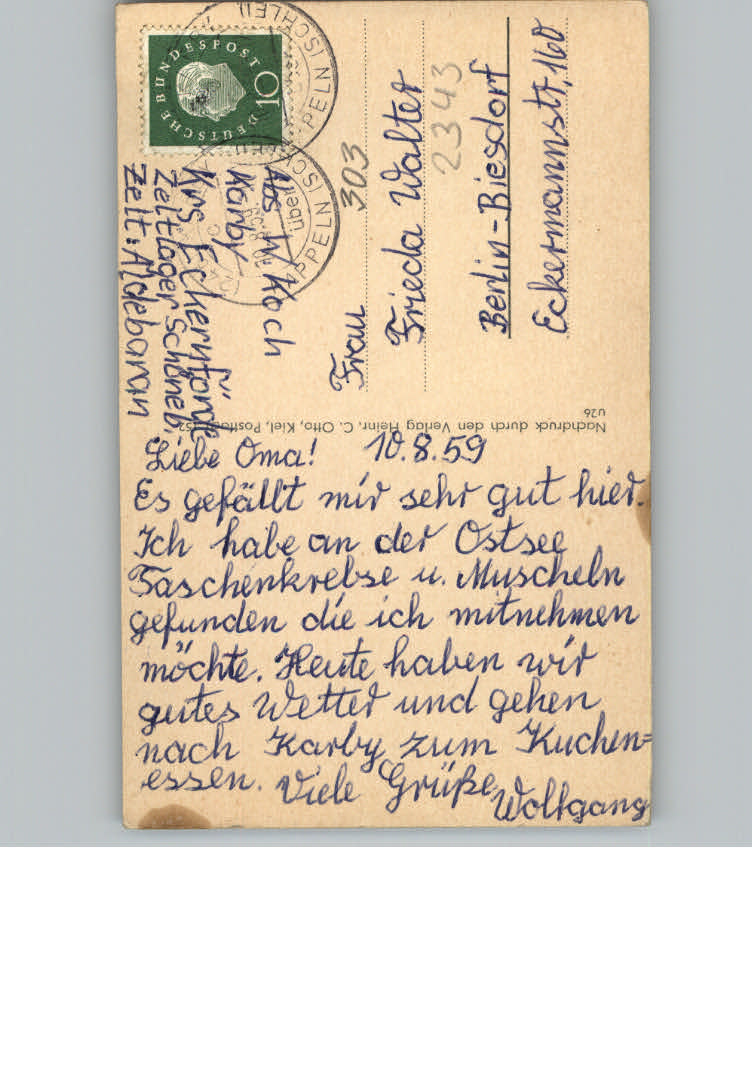 Liebe Oma! 10.8.59
Es gefällt mir sehr gut hier.
Ich habe an der Ostsee
Taschenkrebse u. Muscheln
gefunden die ich mitnehmen
möchte. Heute haben wir
gutes Wetter und gehen
nach Karby zum Kuchen=
essen. Viele Grüße
Wolfgang
Abs W. Koch
Karby
Krs Eckernförde
Zeltlager Schöneb.
Zelt: Aldebaran
Frau
Frieda Walter
Berlin-Biesdorf
Eckermannstr. 160
303
2343
DEUTSCHE BUNDESPOST
10
PPELN (SCHLEI)
über
10.8.59
PPELN (SCHLEI)
Nachdruck durch den Verlag Heinr. C. Otto, Kiel,
u26